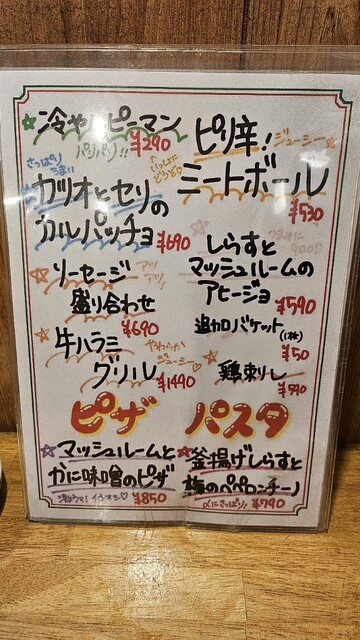 冷やしピーマン
パリパリ!! ¥290
さっぱり
うまい
カツオとセリの
カルパッチョ ¥690
ソーセージ
アツアツ!
盛り合わせ
¥690
牛ハラミ
やわらか
ジューシー♡
グリル ¥1490
ピリ辛! ジューシー
ミートボール
¥530
しらすと
マッシュルームの
アヒージョ
¥590
追加バケット(1枚)
¥50
鶏刺し
¥590
ピザ
マッシュルームと
かに味噌のピザ
¥850
パスタ
釜揚げしらすと
梅のペペロンチーノ
さっぱり! ¥790